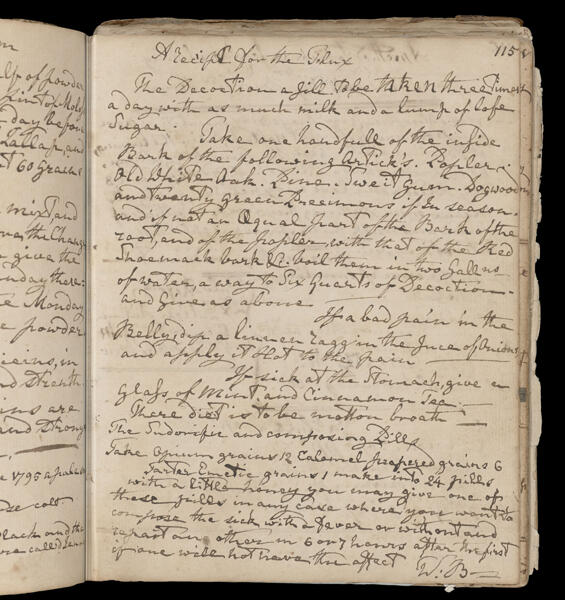 m
115
A receipt for the Flux
The Decoction a Jill to be taken three times
a day with as much milk and a lump of lofe
Sugar.
Take one handfull of the inside
Bark of the following Artick's. Popler.
Old White Oak. Pine. Sweet Gum. Dogwood
and twenty green Precimons if in season
and if not an Equal part of the Bark of the
root, and of the popler, with that of the Red
Shoemack bark &c: boil them in two Gallens
of water, a way to Six Quarts of Decoction
and Give as above
If a bad pain in the
Belly, dip a linnen Ragg in the Juce of Onions
and apply it Hot to the pain
If sick at the Stomach, give a
Glass of Mint and Cinnamon Tea
There diet is to be motton broath
The Sudorific and composing Pills
Take Opium grains 12 Calomel prepared grains 6
Tarter Emetic grains 1 make into 24 pills
with a little honey you may give one of
these pills in any case where you want to
compose the sick with a fever or without and
repeat an other in 6 or 7 hours after the first
if one will not have the effect
W. B
lb of powder
day before
Jallap, and
60 Grains
mixt, and
give the
Monday
powder
in
and strenth
are
and strong
1795 a
black and the